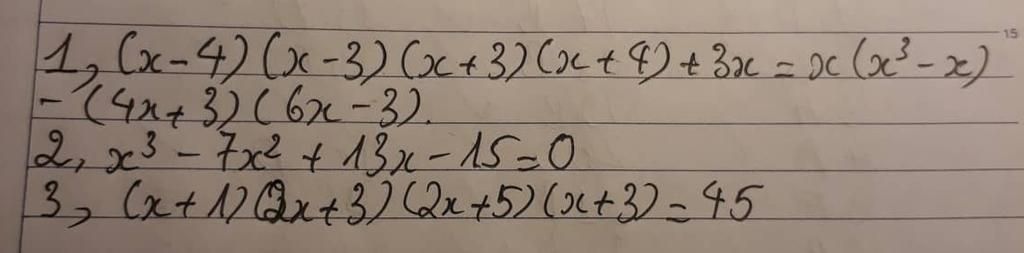 15
1, (x-4)(x-3)(x+3)(x+4)+3x = x(x³-x)
- (4x+3)(6x-3).
2, x³ - 7x² + 13x - 15 = 0
3, (x+1)(2x+3)(2x+5)(x+3) = 45